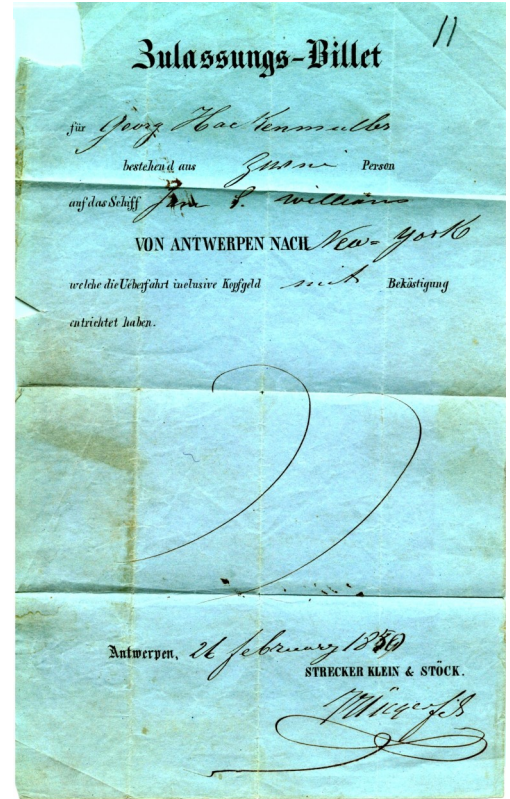 11
Zulassungs-Billet
für Georg Hackenmuller
bestehend aus Person
auf das Schiff S. Williams
VON ANTWERPEN NACH New-York
welche die Ueberfahrt inclusive Kopfgeld mit Beköstigung
entrichtet haben.
Antwerpen, february 1850
STRECKER KLEIN & STÖCK.